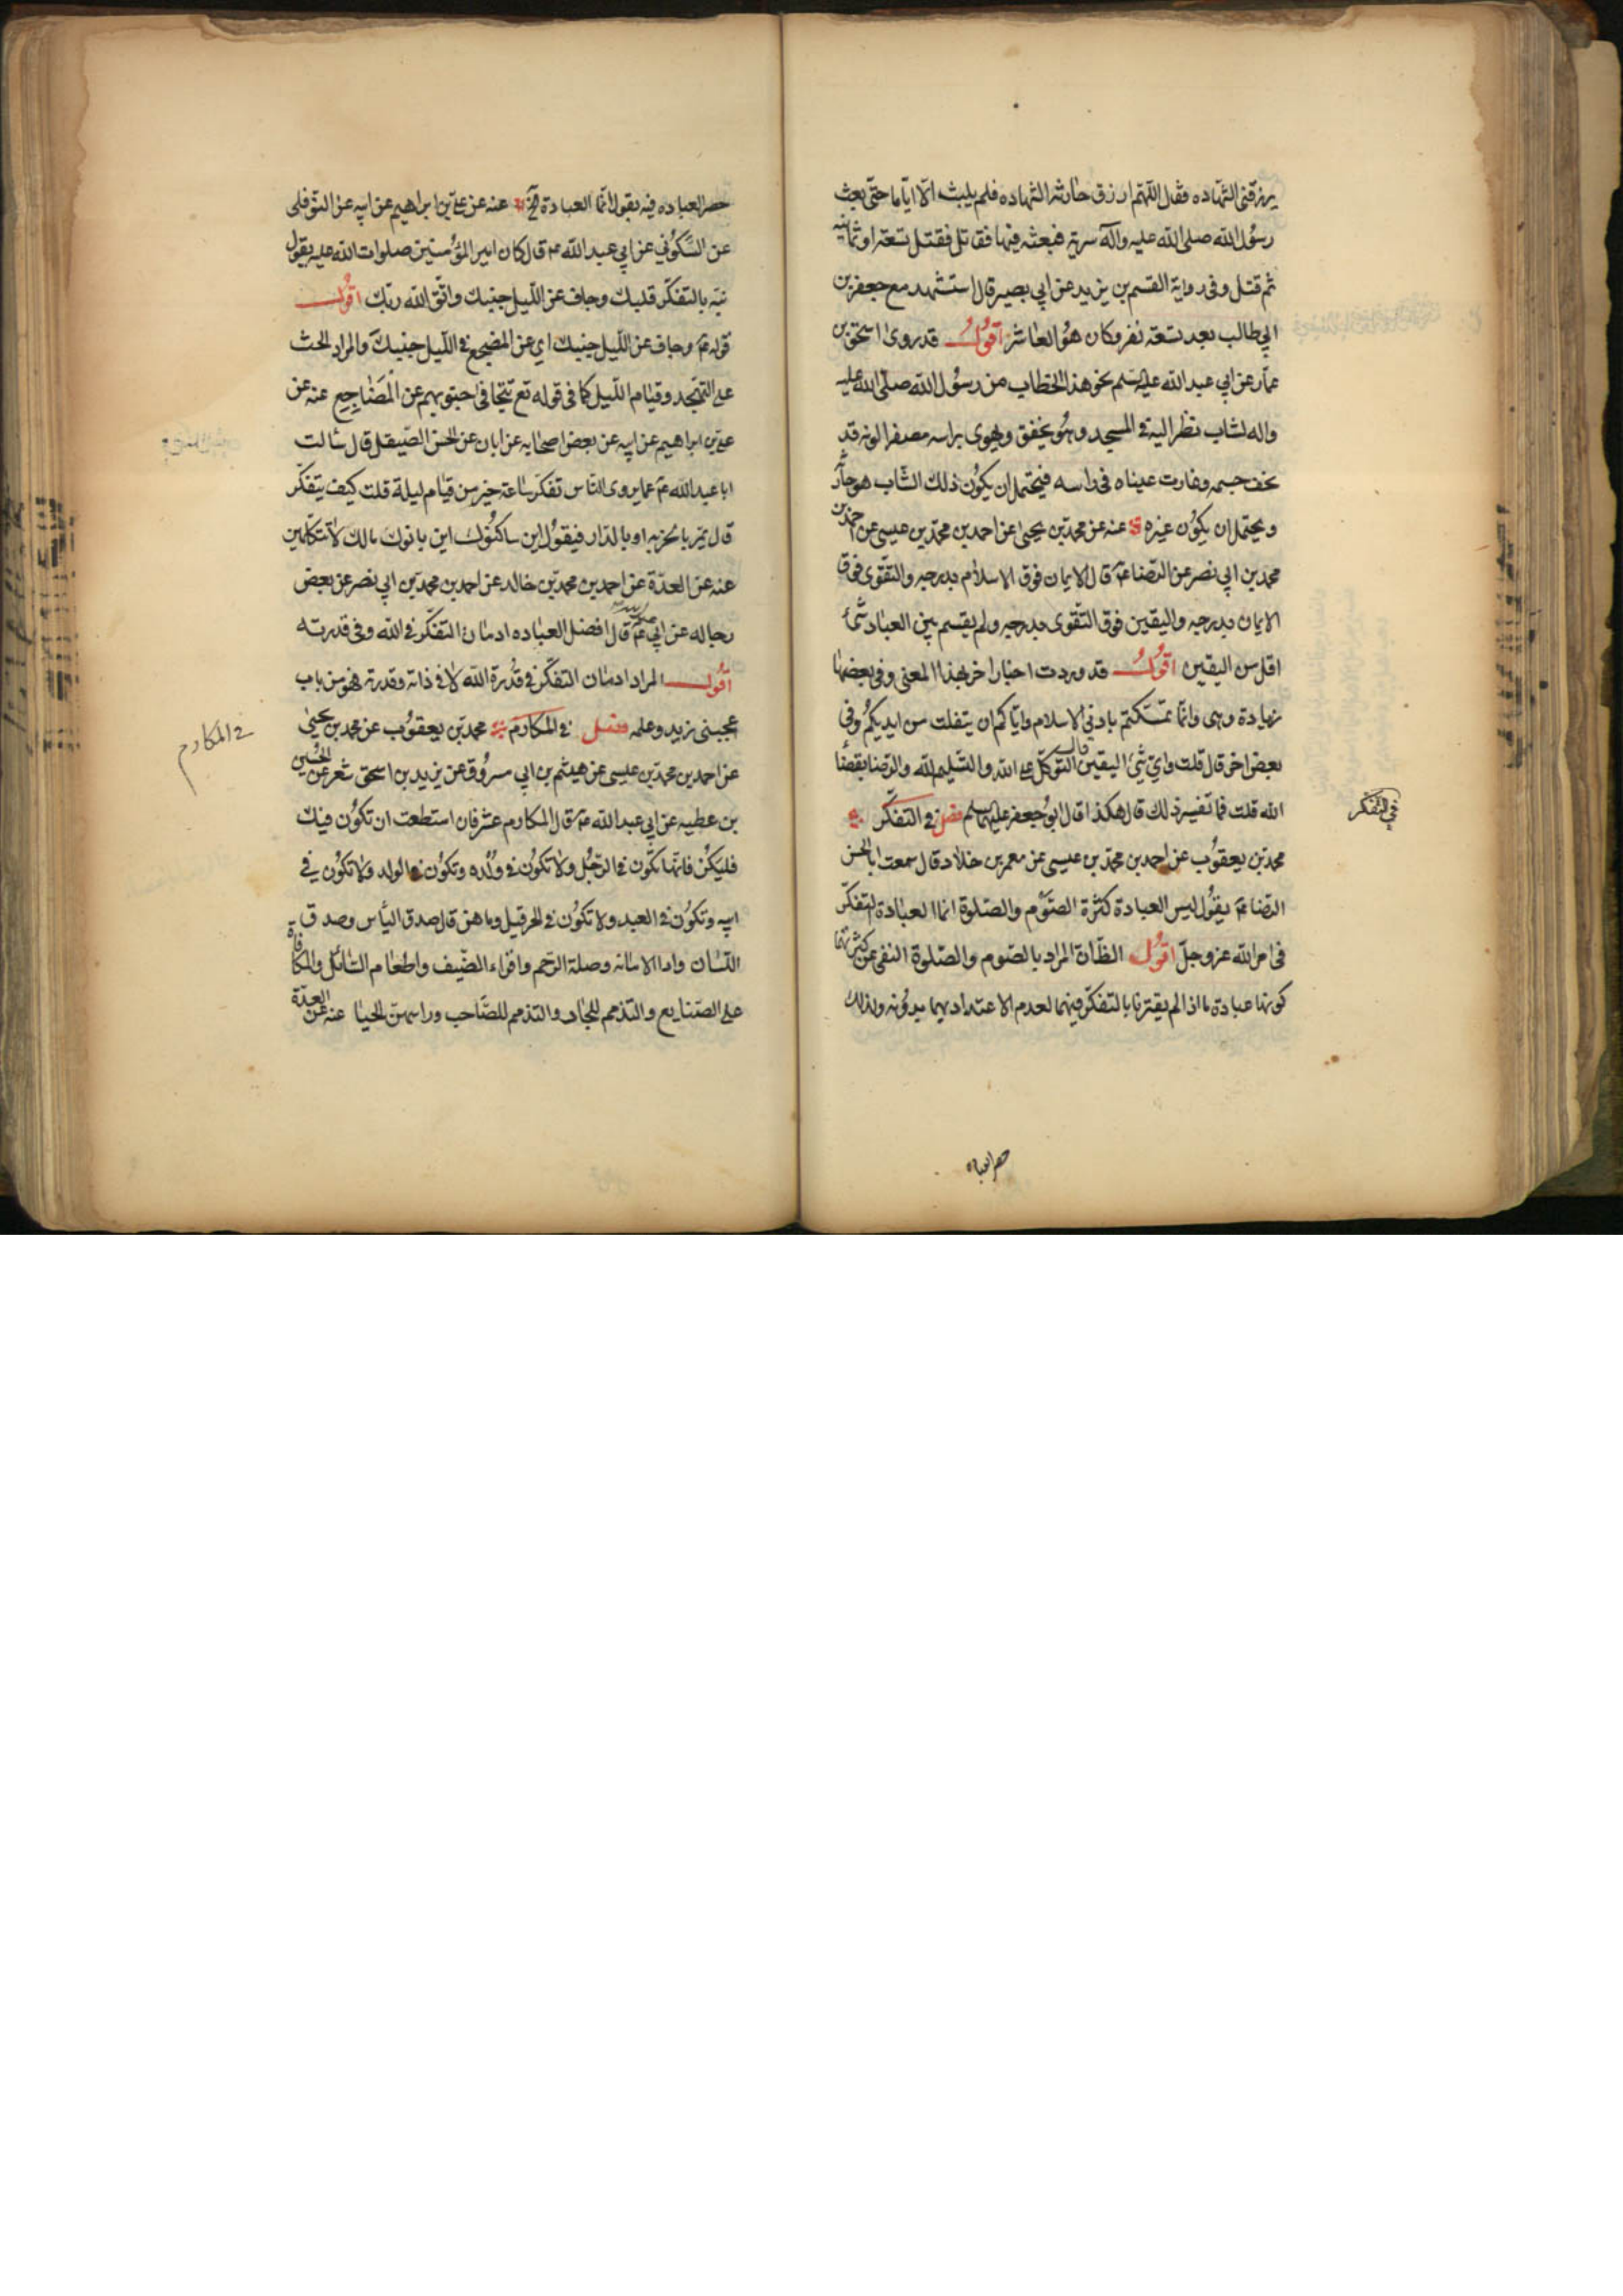 يرزقني الشهاده فقال اللهم ارزق حارثه الشهاده فلم يلبث الا اياما حتى بعث
رسول الله صلى الله عليه وآله سرية فبعثه فيها فقاتل فقتل تسعة او ثمانية
ثم قتل وفى رواية القسم بن بريد عن ابي بصير قال استشهد مع جعفر بن
ابي طالب بعد تسعة نفر وكان هو العاشر اقول قد روى اسحق بن
عمار عن ابي عبد الله عليه السلم نحو هذا الخطاب من رسول الله صلى الله عليه
واله لشاب نظر اليه في المسجد وهو يخفق ويهوى براسه مصفرا لونه قد
نحف جسمه وغارت عيناه فى راسه فيحتمل ان يكون ذلك الشاب هو حارثة
ويحتمل ان يكون غيره عنه عن محمد بن يحيى عن احمد بن محمد بن عيسى عن احمد بن
محمد بن ابي نصر عن الرضا عم قال الايمان فوق الاسلام بدرجه والتقوى فوق
الايمان بدرجه واليقين فوق التقوى بدرجه ولم يقسم بين العباد شئ
اقل من اليقين اقول قد وردت اخبار اخر بهذا المعنى وفى بعضها
زيادة وهى وانما تمسكتم بادنى الاسلام واياكم ان يتفلت من ايديكم وفى
بعض اخر قال قلت واي شئ اليقين قال التوكل على الله والتسليم لله والرضا بقضا
الله قلت فما تفسير ذلك قال هكذا قال ابو جعفر عليهما سلم فصل في التفكر
محمد بن يعقوب عن احمد بن محمد بن عيسى عن معمر بن خلاد قال سمعت ابا الحسن
الرضا عم يقول ليس العبادة كثرة الصوم والصلوة انما العبادة التفكر
فى امر الله عز وجل اقول الظان المراد بالصوم والصلوة النفى عن كثرتهما
كونها عبادة ما اذا لم يقترنا بالتفكر فيهما لعدم الاعتداد بهما بدونه ولذلك
حصر العباده
في التفكر
حصر العباده فيه بقوله انما العبادة عنه عن علي بن ابراهيم عن ابيه عن النوفلى
عن السكوني عن ابي عبد الله عم قال كان امير المؤمنين صلوات الله عليه يقول
نبه بالتفكر قلبك وجاف عن الليل جنبك واتق الله ربك اقول
قوله عم وجاف عن الليل جنبك اي عن المضجع في الليل جنبك والمراد الحث
على التهجد وقيام الليل كما فى قوله تع تتجافى جنوبهم عن المضاجع عنه عن
علي بن ابراهيم عن ابيه عن بعض اصحابه عن ابان عن الحسن الصيقل قال سالت
ابا عبد الله عم عما يروى الناس تفكر ساعة خير من قيام ليلة قلت كيف يتفكر
قال يمر بالخربه او بالدار فيقول اين ساكنوك اين بانوك مالك لا تتكلمين
عنه عن العدة عن احمد بن محمد بن خالد عن احمد بن محمد بن ابي نصر عن بعض
رجاله عن ابي عبد الله عم قال افضل العباده ادمان التفكر في الله وفى قدرته
اقول المراد ادمان التفكر في قدرة الله لا في ذاته وقدرته فهو من باب
عجبنى زيد وعلمه فصل في المكارم محمد بن يعقوب عن محمد بن يحيى
عن احمد بن محمد بن عيسى عن هيثم بن ابي مسروق عن يزيد بن اسحق شعر عن الحسين
بن عطيه عن ابي عبد الله عم قال المكارم عشر فان استطعت ان تكون فيك
فليكن فانها تكون في الرجل ولا تكون في ولده وتكون في الولد ولا تكون في
ابيه وتكون في العبد ولا تكون في الحر قيل وما هن قال صدق الياس وصدق
اللسان وادا الامانه وصلة الرحم واقراء الضيف واطعام السائل والمكافاة
على الصنايع والتذمم للجار والتذمم للصاحب وراسهن الحيا عنه عن العدة
في المكارم